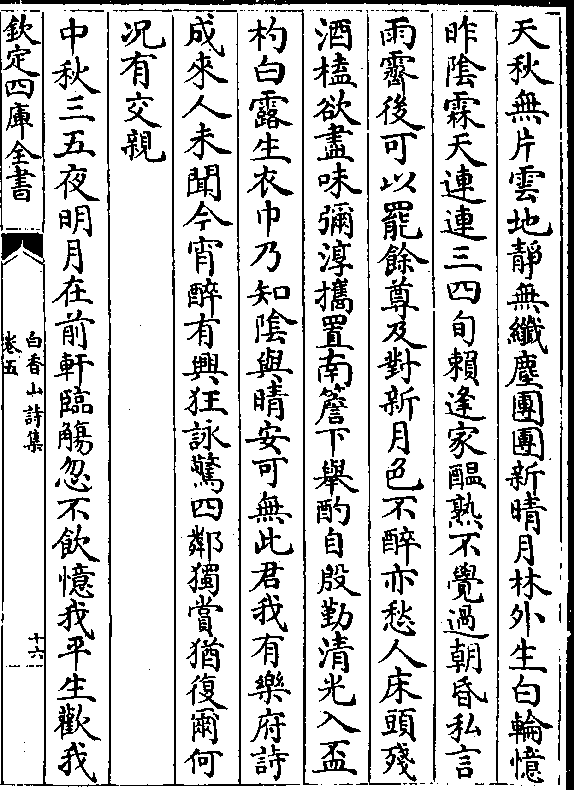 天秋無片雲地靜無纖塵團團新晴月林外生白輪憶
昨陰霖天連連三四旬賴逢家醖熟不覺過朝昏私言
雨霽後可以罷餘尊及對新月色不醉亦愁人床頭殘
酒榼欲盡味彌淳攜置南簷下舉酌自殷勤清光入盃
杓白露生衣巾乃知陰與晴安可無此君我有樂府詩
成來人未聞今宵醉有興狂詠驚四鄰獨賞猶復爾何
况有交親
中秋三五夜明月在前軒臨觴忽不飲憶我平生歡我
欽定四庫全書
白香山詩集
卷五
十六